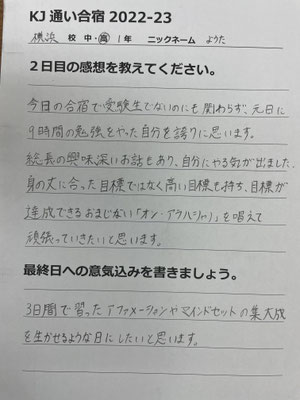 KJ 通い合宿 2022-23
横浜 校 中・高 1年 ニックネーム ようた
2日目の感想を教えてください。
今日の合宿で受験生でないのにも関わらず、元日に
9時間の勉強をやった自分を誇りに思います。
総長の興味深いお話もあり、自分にやる気が出ました。
身の丈に合った目標ではなく高い目標も持ち、目標が
達成できるおまじない「オン・アラハシャノ」を唱えて
頑張っていきたいと思います。
最終日への意気込みを書きましょう。
3日間で習ったアファメーションやマインドセットの集大成
を生かせるような日にしたいと思います。